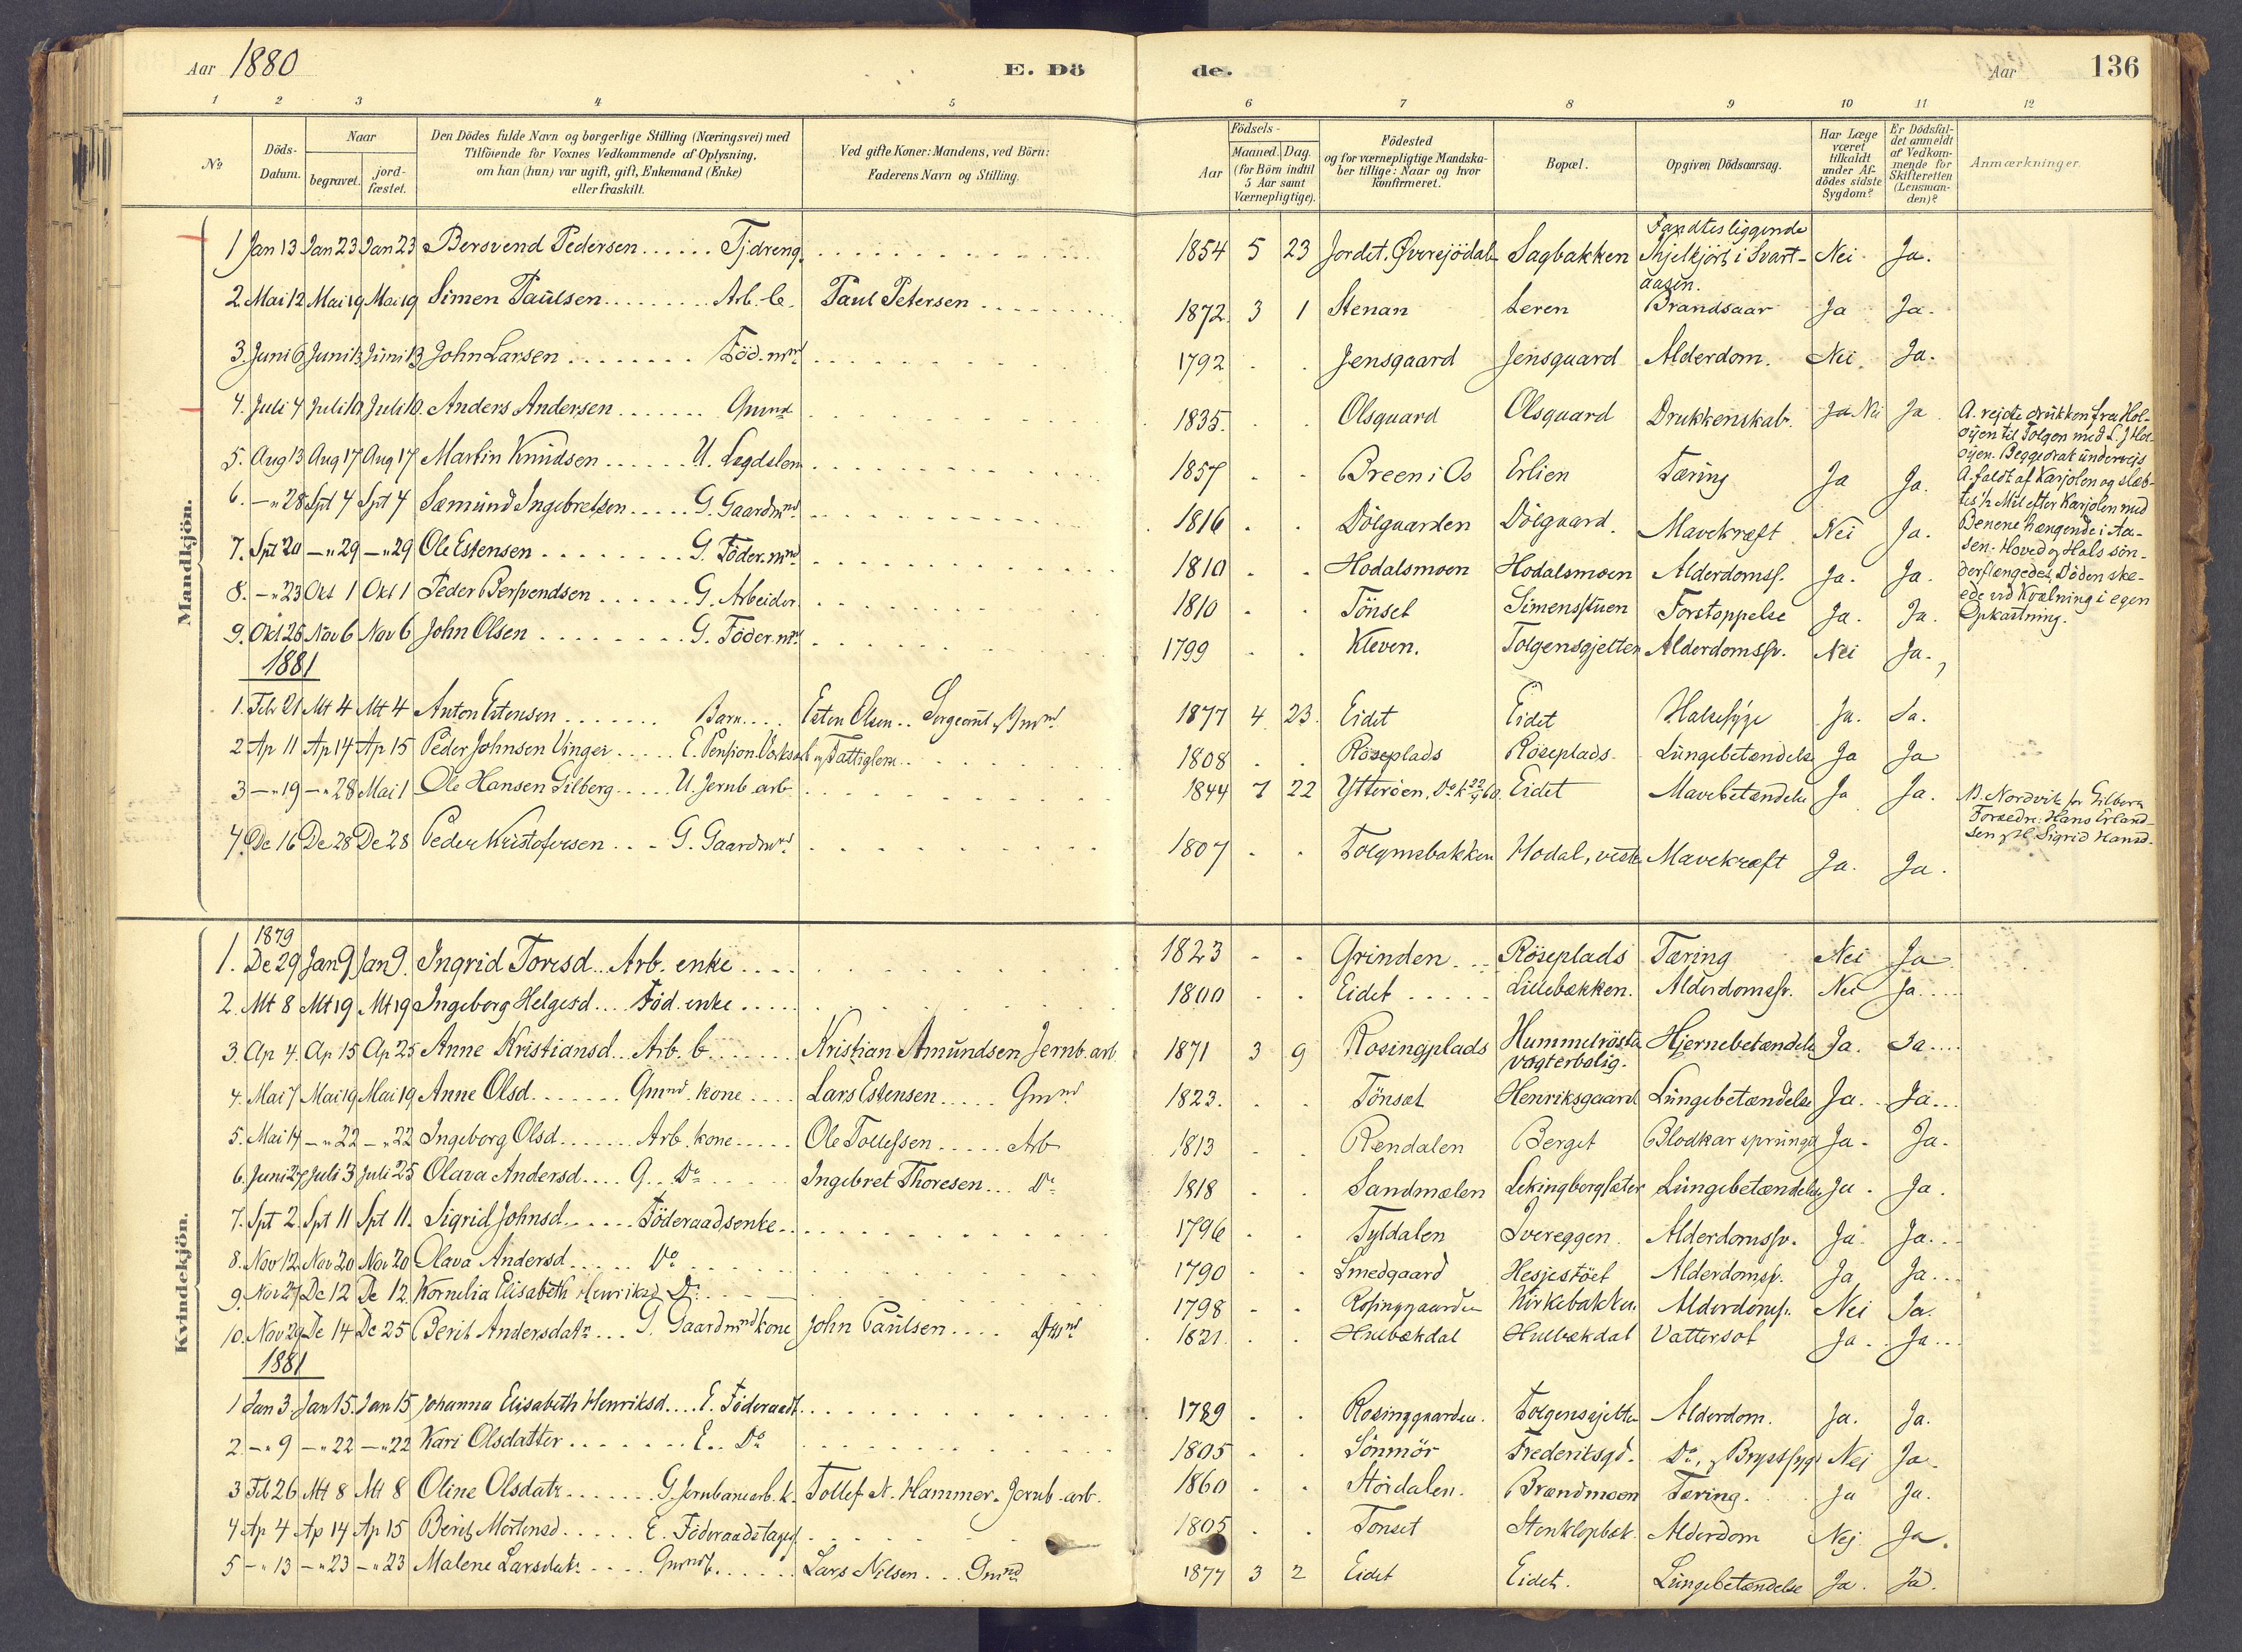 Aar 1880
E. Dö de.
Aar 136
1 2 3 4 5 6 7 8 9 10 11 12
No
Döds-Datum.
Naar
begravet.
jord-fæstet.
Den Dödes fulde Navn og borgerlige Stilling (Næringsvei) med
Tilföiende for Voxnes Vedkommende af Oplysning,
om han (hun) var ugift, gift, Enkemand (Enke)
eller fraskilt.
Ved gifte Koner: Mandens, ved Börn:
Faderens Navn og Stilling.
Födsels-
Aar
Maaned. Dag.
(for Börn indtil
5 Aar samt
Værnepligtige).
Födested
og for værnepligtige Mandska-
ber tillige: Naar og hvor
konfirmeret.
Bopæl.
Opgiven Dödsaarsag.
Har Læge
været
tilkaldt
under Af-
dödes sidste
Sygdom?
Er Dödsfal-
det anmeldt
af Vedkom-
mende for
Skifteretten
(Lensman-
den)?
Anmærkninger.
Mandkjön.
1 Jan 13 Jan 23 Jan 23 Bersvend Pedersen Tj.dreng. 1854 5 23 Jordet. Øvrejödal Sagbakken Fandtes liggende ihjelkjört i Svart-aasen. Nei Ja.
2. Mai 12 Mai 19 Mai 19 Simen Paulsen Arb. b. Paul Petersen 1872 3 1 Stenan Leren Brandsaar Ja Ja.
3. Juni 6 Juni 13 Juni 13 John Larsen Föd.mnd 1792 Jensgaard Jensgaard Alderdom. Nei. Ja.
4. Juli 4 Juli 10 Juli 10. Anders Andersen Gmnd 1835. Olsgaard Olsgaard Drukkenskab. Ja Nei Ja
5. Aug 13 Aug 17 Aug 17 Martin Knudsen U. Lægdslem 1857 Breen i Os Erlien Tæring Ja Ja.
6. -"28 Spt 4 Spt 4 Sæmund Ingebretsen G. Gaardmnd 1816 Dölgaarden Dölgaard. Mavekræft Nei Ja.
7. Spt 20 -"29 -"29 Ole Estensen G. Föder.mnd 1810 Hodalsmoen Hodalsmoen Alderdomsf. Ja. Ja.
8. -"23 Okt 1 Okt 1 Peder Bersvendsen G. Arbeider. 1810 Tönset Simensstuen Forstoppelse Ja. Ja.
9. Okt 25 Nov 6 Nov 6 John Olsen G. Föder.mnd 1799 Kleven. Tolgensgjelten Alderdomssv. Nei Ja.
A. rejste drukken fra Hol-
öyen til Tolgen med L. J Hol-
öyen. Begge drak underveis
A. faldt af Karjolen og slæb-
tes 1/2 Mil efter Karjolen med
Benene hængende i Aa-
sen. Hoved og Hals sön-
derflængedes, Döden ske-
ede ved Kvælning i egen
Opkastning.
1881
1. Feb 21 Mt 4 Mt 4 Anton Estensen Barn Esten Olsen Sergeant og Gmnd 1877 4 23. Eidet Eidet Halssyge Ja. Ja.
2 Ap 11 Ap 14 Ap 15 Peder Johnsen Vinger E. Pension. og Fattiglem 1808 Röseplads Röseplads. Lungebetændelse Ja Ja
3 -"19 -"28 Mai 1 Ole Hansen Gilberg U. Jernb. arb. 1844 7 22 Ytteröen, Eidet Mavebetændelse Ja Ja.
N. Nordvik for Gilberg
Forældre: Hans Erland-
sen og H. Sigrid Hansd.
4. De 16 De 28 De 28 Peder Kristofersen G. Gaardmnd 1807 Tolgensbakken Hodal, vestr. Mavekræft Ja. Ja.
Kvindekjön.
1879
1. De 29 Jan 9 Jan 9. Ingrid Toresd. Arb. enke 1823 Grinden Röseplads Tæring Nei Ja
2. Mt 8 Mt 19 Mt 19 Ingeborg Helgesd Föd. enke 1800 Eidet Lillebækken. Alderdomssv. Nei Ja
3. Ap 4. Ap 15 Ap 25 Anne Kristiansd Arb. b Kristian Amundsen Jernb. arb. 1871 3 9 Rosingplads Hummelrösta vogterbolig. Hjernebetændelse Ja. Ja
4. Mai 7 Mai 19 Mai 19 Anne Olsd. Gmnd. kone Lars Estensen Gmnd 1823. Tönset Henriksgaard Lungebetændelse Ja. Ja
5. Mai 14 -"22 -"22 Ingeborg Olsd. Arb. kone Ole Tollefsen Arb 1813 Rendalen Berget Blodkar sprungd Ja. Ja.
6. Juni 27 Juli 3 Juli 25 Olava Andersd. G. Do Ingebret Thoresen Do 1818 Sandmælen Lekingbergsæter Lungebetændelse Ja. Ja.
7. Spt 2. Spt 11 Spt 11. Sigrid Johnsd. Föderaadsenke 1796 Tyldalen Ivereggen. Alderdomssv. Ja. Ja.
8. Nov 12 Nov 20 Nov 20 Olava Andersd Do 1790 Smedgaard Hesjestöel Alderdomssv. Ja Ja
9. Nov 27 De 12 De 12. Kornelia Elisabeth Henriksd Do 1798 Rosinggaarden Kirkebakken. Alderdomsf. Nei Ja.
10. Nov 29 De 14 De 25 Berit Andersdatr G. Gaardmnd kone John Paulsen Gmnd 1821. Hulbækdal Hulbækdal Vattersot Ja. Ja
1881
1 Jan 3. Jan 15. Jan 15 Johanna Elisabeth Henriksd E. Föderaadt. 1789 Rosinggaarden. Tolgensgjelten Alderdom. Ja. Ja.
2. -"9 -"22 -"22 Kari Olsdatter E. Do 1805 Sönmör Frederiksgd. Do, Brystsyge Nej Ja.
3 Feb 26 Mt 8 Mt 8 Oline Olsdatr G. Jernbanearb. k. Tollef N. Hammer. Jernb. arb. 1860 Stördalen. Brændmoen Tæring. Ja Ja.
4 Ap 4 Ap 14 Ap 15 Berit Mortensd. E. Föderaadstager. 1805 Tönset Stenklopbæk. Alderdom Nej. Ja.
5 -"13 -"23 -"23 Malene Larsdatr Gmnd b. Lars Nilsen Gmnd 1877 3 2 Eidet Eidet. Lungebetændelse Ja. Ja.